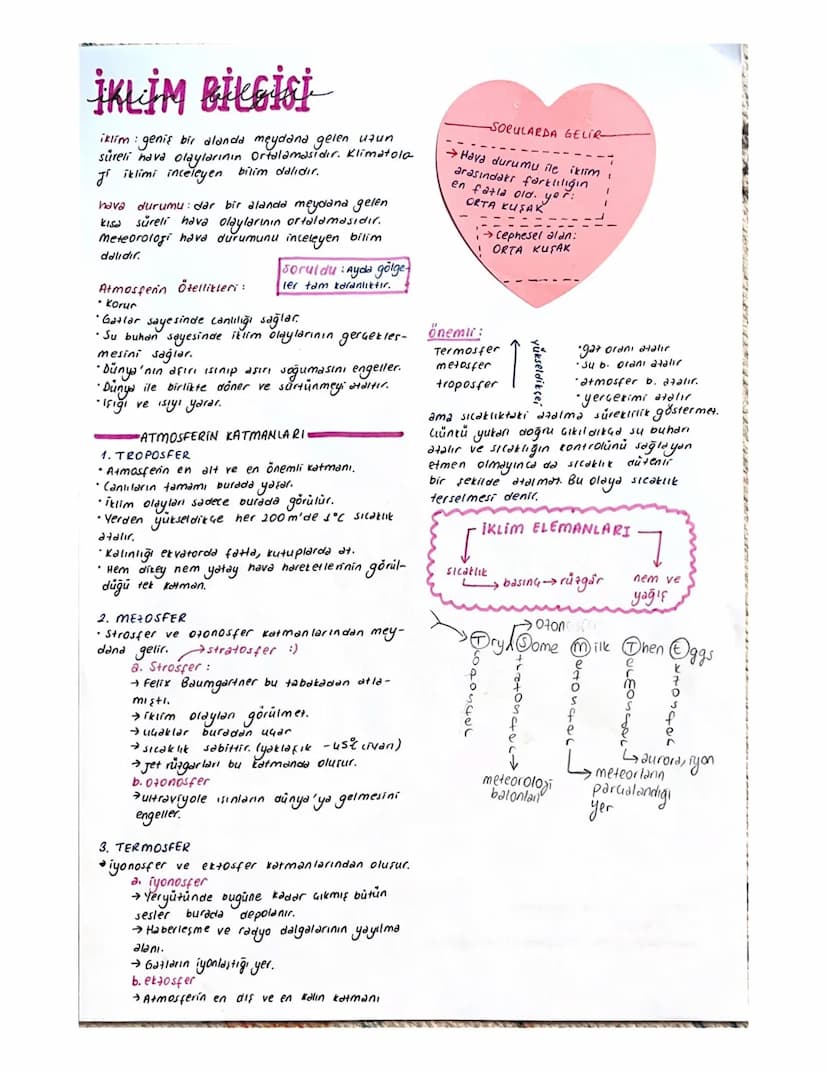 İKLİM BİLGİSİ
iklim bilgisi
iklim : geniş bir alanda meydana gelen uzun
süreli hava olaylarının ortalamasıdır. Klimatolo-
ji iklimi inceleyen bilim dalıdır.
hava durumu : dar bir alanda meydana gelen
kısa süreli hava olaylarının ortalamasıdır.
Meteoroloji hava durumunu inceleyen bilim
dalıdır.
soruldu : Ayda gölge-
ler tam karanlıktır.
Atmosferin Özellikleri :
• Korur
• Gazlar sayesinde canlılığı sağlar.
• Su buharı sayesinde iklim olaylarının gerçekleş-
mesini sağlar.
• Dünya'nın aşırı ısınıp aşırı soğumasını engeller.
• Dünya ile birlikte döner ve sürtünmeyi azaltır.
• Işığı ve ısıyı yayar.
ATMOSFERİN KATMANLARI
1. TROPOSFER
• Atmosferin en alt ve en önemli katmanı.
• Canlıların tamamı burada yaşar.
• İklim olayları sadece burada görülür.
• Yerden yükseldikçe her 200 m'de 1°C sıcaklık
azalır.
• Kalınlığı ekvatorda fazla, kutuplarda az.
• Hem dikey hem yatay hava hareketlerinin görül-
düğü tek katman.
2. MEZOSFER
• Strosfer ve ozonosfer katmanlarından mey-
dana gelir. → stratosfer :)
a. Strosfer :
→ Felix Baumgartner bu tabakadan atla-
mıştı.
→ iklim olayları görülmez.
→ uçaklar buradan uçar
→ sıcaklık sabittir. (yaklaşık -45°C civarı)
→ jet rüzgarları bu katmanda oluşur.
b. ozonosfer
→ ultraviyole ışınların dünya'ya gelmesini
engeller.
3. TERMOSFER
→ iyonosfer ve ekzosfer katmanlarından oluşur.
a. iyonosfer
→ Yeryüzünde bugüne kadar çıkmış bütün
sesler burada depolanır.
→ Haberleşme ve radyo dalgalarının yayılma
alanı.
→ Gazların iyonlaştığı yer.
b. ekzosfer
→ Atmosferin en dış ve en kalın katmanı
SORULARDA GELİR
→ Hava durumu ile iklim
arasındaki farklılığın
en fazla old. yer:
ORTA KUŞAK
→ Cephesel alan:
ORTA KUŞAK
önemli :
Termosfer
mezosfer
troposfer
yükseldikçe
• gaz oranı azalır
• su b. oranı azalır
• atmosfer b. azalır.
• yerçekimi azalır
ama sıcaklıktaki azalma süreklilik göstermez.
Çünkü yukarı doğru çıkıldıkça su buharı
azalır ve sıcaklığın kontrolünü sağlayan
etmen olmayınca da sıcaklık düzenli
bir şekilde azalmaz. Bu olaya sıcaklık
terselmesi denir.
İKLİM ELEMANLARI
sıcaklık
→ basınç → rüzgâr
nem ve
yağış
→ ozonosfer
Try Some Milk Then Eggs
Troposfer
Stratosfer
Mezosfer
Termosfer
Ekzosfer
meteoroloji
balonları
→ meteorların
parçalandığı
yer
→ aurora, iyon